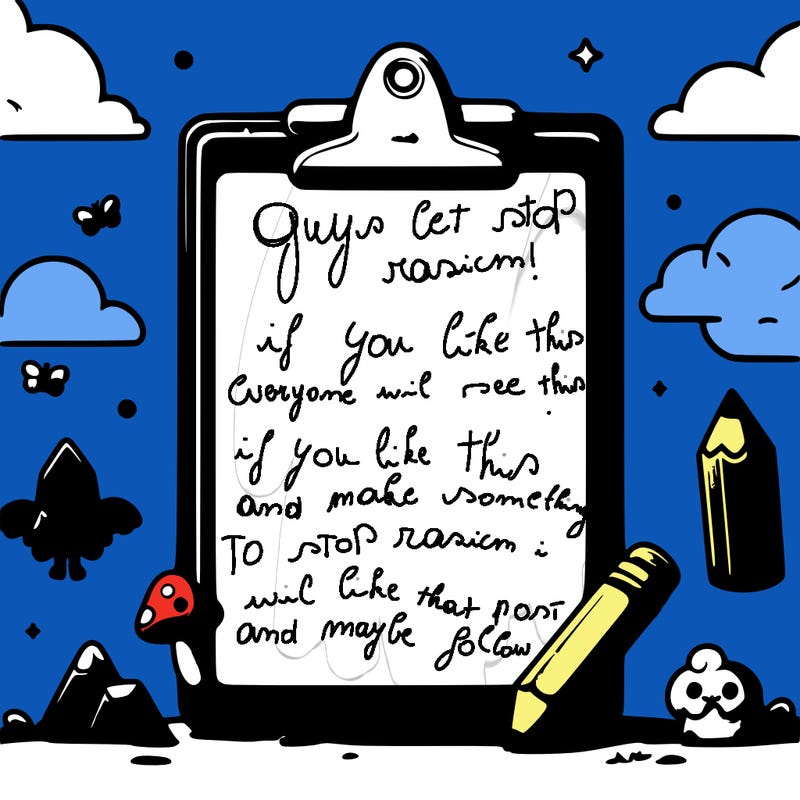 guys let stop
rasicm!
if you like this
Everyone wil see this
if you like this
and make something
TO STOP rasicm i
wil like that post
and maybe follow